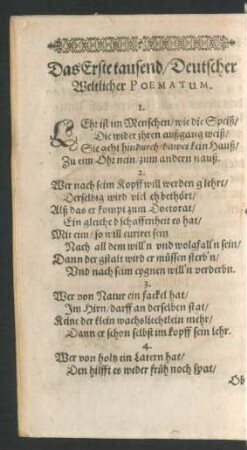 Das Erste tausend / Deutscher
Weltlicher POEMATUM.
1.
LEhr ist im Menschen / wie die Speiß /
Die wider ihren außgang weiß /
Sie geht hindurch bawet kein Hauß /
Zu eim Ohr nein / zum andern nauß.
2.
Wer nach seim Kopff will werden glehrt /
Derselbig wird viel eh bethört /
Alß das er kompt zum Doctorat /
Ein gleiche bschaffenheit es hat /
Mit eim / so will curirt sein
Nach all dem will'n vnd wolgfall'n sein /
Dann der gstalt wird er müssen sterb'n /
Vnd nach seim eygnen will'n verderbn.
3.
Wer von Natur ein fackel hat /
Im Hirn / darff an derselben stat /
Keine der klein wachsliechtlein mehr /
Dann er schon selbst im kopff sein lehr.
4.
Wer von holtz ein Latern hat /
Den hilfft es weder früh noch spat /
Ob